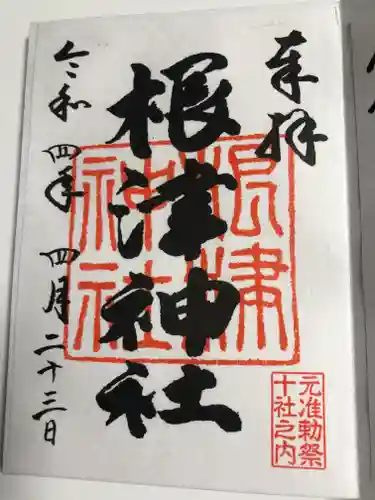 奉拝
根津神社
根津
神社
令和四年四月二十三日
元准勅祭
十社之内